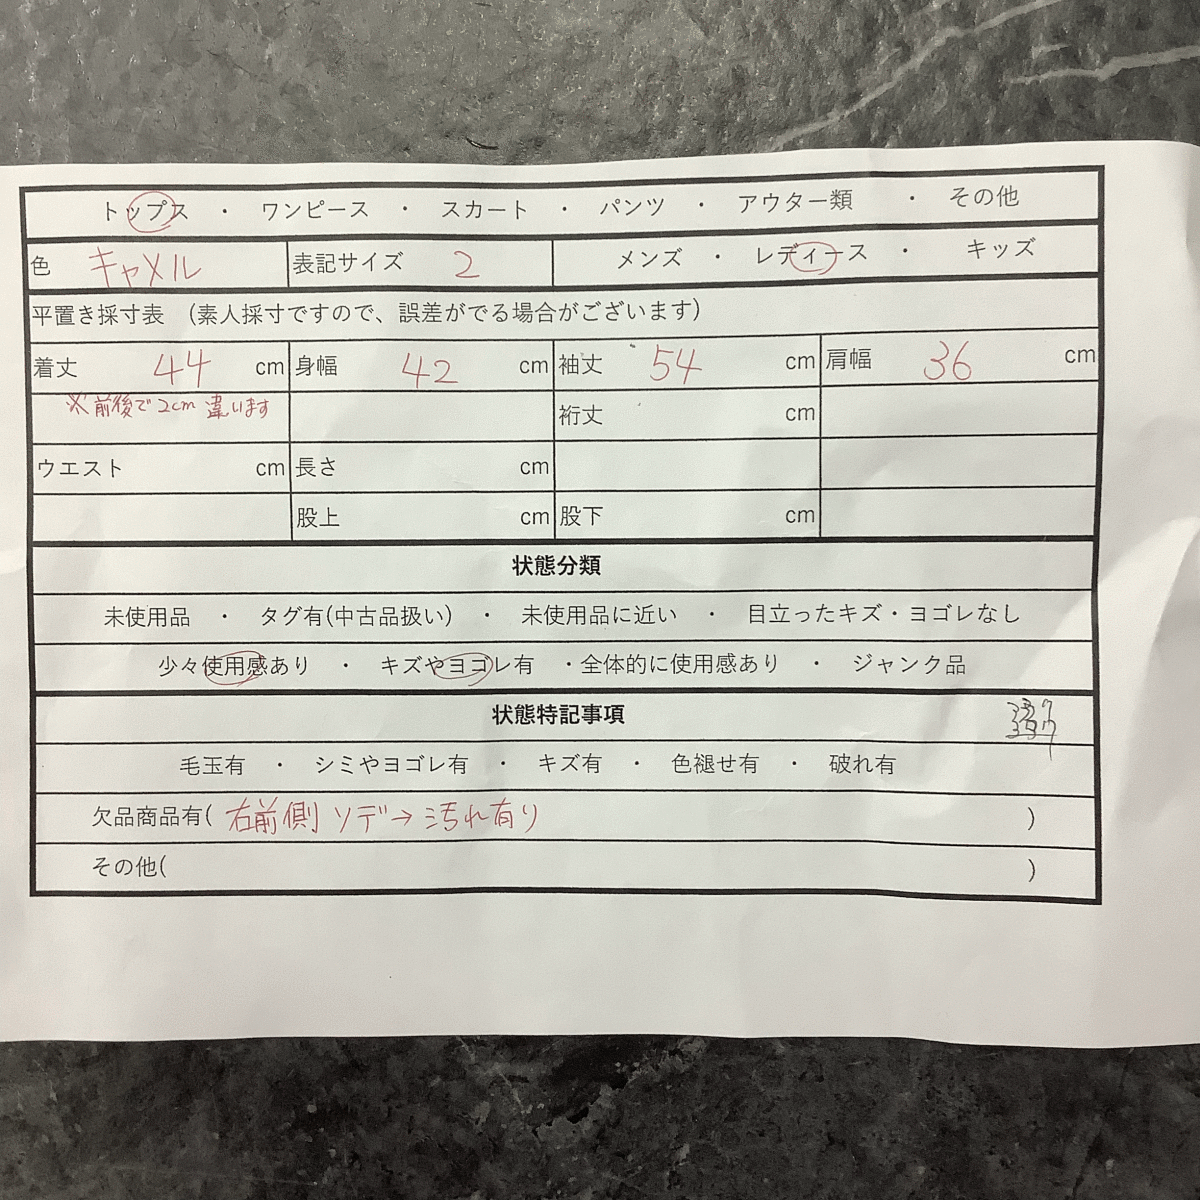 トップス ・ ワンピース ・ スカート ・ パンツ ・ アウター類 ・ その他
色 キャメル 表記サイズ 2 メンズ ・ レディース ・ キッズ
平置き採寸表 (素人採寸ですので、誤差がでる場合がございます)
着丈 44 cm 身幅 42 cm 袖丈 54 cm 肩幅 36 cm
※前後で2cm 違います 裄丈 cm
ウエスト cm 長さ cm
股上 cm 股下 cm
状態分類
未使用品 ・ タグ有(中古品扱い) ・ 未使用品に近い ・ 目立ったキズ・ヨゴレなし
少々使用感あり ・ キズやヨゴレ有 ・全体的に使用感あり ・ ジャンク品
状態特記事項
毛玉有 ・ シミやヨゴレ有 ・ キズ有 ・ 色褪せ有 ・ 破れ有
欠品商品有( 右前側 ソデ→汚れ有り )
その他( )